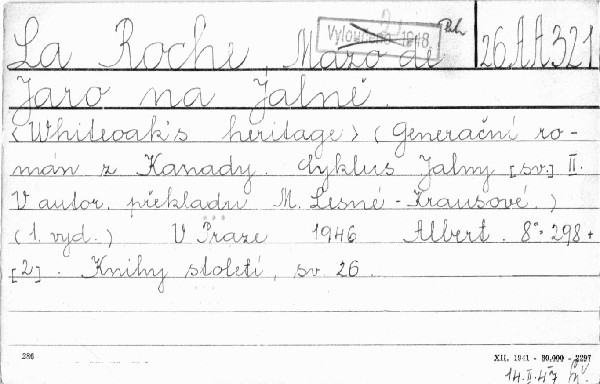 La Roche, Mazo de 26.AA321
Vyloučeno 1948.
Jaro na Jalně.
<Whiteoak's heritage> (Generační ro-
mán z Kanady. Cyklus Jalny [sv.] II.
V autor. překladu M. Lesné-Krausové.)
(1. vyd.) V Praze 1946 Albert. 8° 298+
[2]. Knihy století, sv. 26.
286 XII. 1941 - 30.000 - 2297
14.II.47